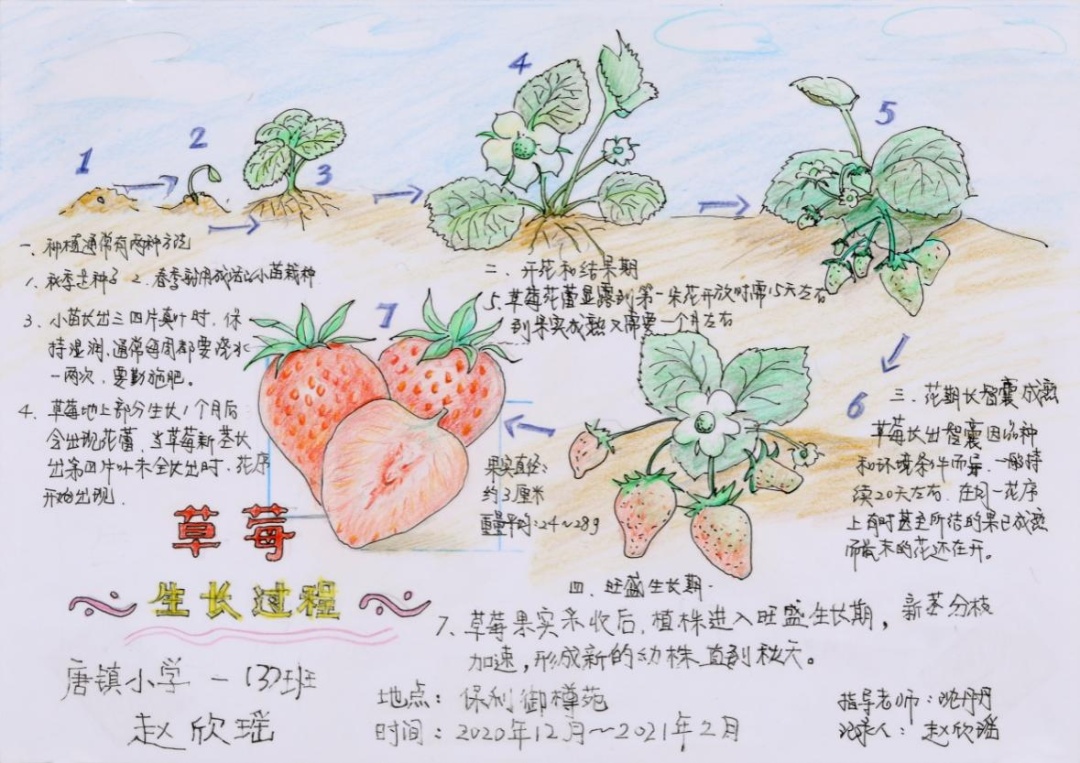 1
2
3
4
5
6
7
一、种植通常有两种方法
1、秋季选种子 2、春季前用成活的小苗栽种
3、小苗长出三四片真叶时，保
持湿润，通常每周都要浇水
一两次，要勤施肥。
4、草莓地上部分生长1个月后
会出现花蕾，当草莓新茎长
出第四片叶未全长出时，花序
开始出现.
二、开花和结果期
5、草莓花蕾显露到第一朵花开放时需15天左右
到果实成熟又需要一个月左右
三、花期长智囊成熟
草莓长出智囊因品种
和环境条件而异，一般持
续20天左右，在同一花序
上有时甚至所结的果已成熟
而最末的花还在开。
果实直径：
约3厘米
重量平均：24~28g
四、旺盛生长期.
7、草莓果实采收后，植株进入旺盛生长期，新茎分枝
加速，形成新的幼株直到秋天。
草莓
生长过程
唐镇小学 一(3)班
赵欣瑶
地点：保利御樽苑
时间：2020年12月~2021年2月
指导老师：沈丹丹
记录人：赵欣瑶